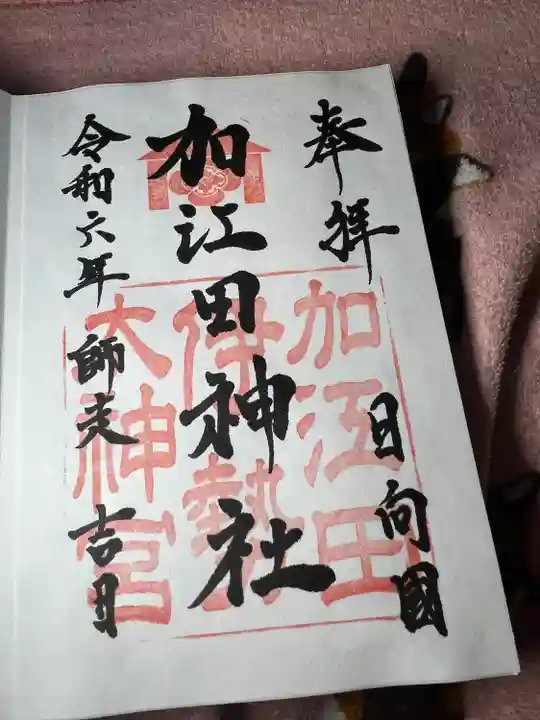 奉拝
日向國
加江田神社
令和六年 師走 吉日
加江田
伊勢
大神宮